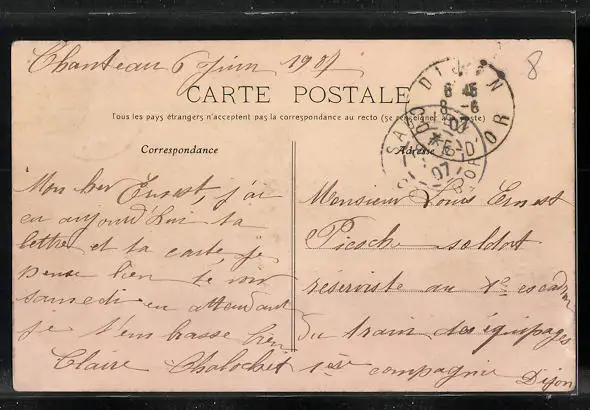 Chanteau 6 Juin 1907
8
CARTE POSTALE
Tous les pays étrangers n'acceptent pas la correspondance au recto (se renseigner à la Poste)
Correspondance
Adresse
DIJON
6 45
8 -6
07
COTE-D'OR
Mon cher Ernest, j'ai
eu aujourd'hui ta
lettre et ta carte, je
pense bien te voir
samedi en attendant
je t'embrasse bien
Claire
Monsieur Louis Ernest
soldat
réserviste au escadron
du train des équipages
1ère compagnie
Dijon